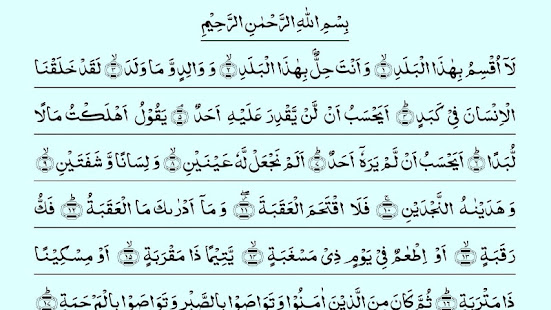 بِسْمِ اللّٰهِ الرَّحْمٰنِ الرَّحِيْمِ
لَآ اُقْسِمُ بِهٰذَا الْبَلَدِ ۝١ۙ وَ اَنْتَ حِلٌّۢ بِهٰذَا الْبَلَدِ ۝٢ۙ وَ وَالِدٍ وَّ مَا وَلَدَ ۝٣ۙ لَقَدْ خَلَقْنَا
الْاِنْسَانَ فِيْ كَبَدٍ ۝٤ؕ اَيَحْسَبُ اَنْ لَّنْ يَّقْدِرَ عَلَيْهِ اَحَدٌ ۝٥ۘ يَقُوْلُ اَهْلَكْتُ مَالًا
لُّبَدًا ۝٦ؕ اَيَحْسَبُ اَنْ لَّمْ يَرَهٗۤ اَحَدٌ ۝٧ؕ اَلَمْ نَجْعَلْ لَّهٗ عَيْنَيْنِ ۝٨ۙ وَ لِسَانًا وَّ شَفَتَيْنِ ۝٩ۙ
وَ هَدَيْنٰهُ النَّجْدَيْنِ ۝١٠ۚ فَلَا اقْتَحَمَ الْعَقَبَةَ ۝١١ۖ وَ مَاۤ اَدْرٰىكَ مَا الْعَقَبَةُ ۝١٢ؕ فَكُّ
رَقَبَةٍ ۝١٣ۙ اَوْ اِطْعٰمٌ فِيْ يَوْمٍ ذِيْ مَسْغَبَةٍ ۝١٤ۙ يَّتِيْمًا ذَا مَقْرَبَةٍ ۝١٥ۙ اَوْ مِسْكِيْنًا
ذَا مَتْرَبَةٍ ۝١٦ؕ ثُمَّ كَانَ مِنَ الَّذِيْنَ اٰمَنُوْا وَ تَوَاصَوْا بِالصَّبْرِ وَ تَوَاصَوْا بِالْمَرْحَمَةِ ۝١٧ؕ